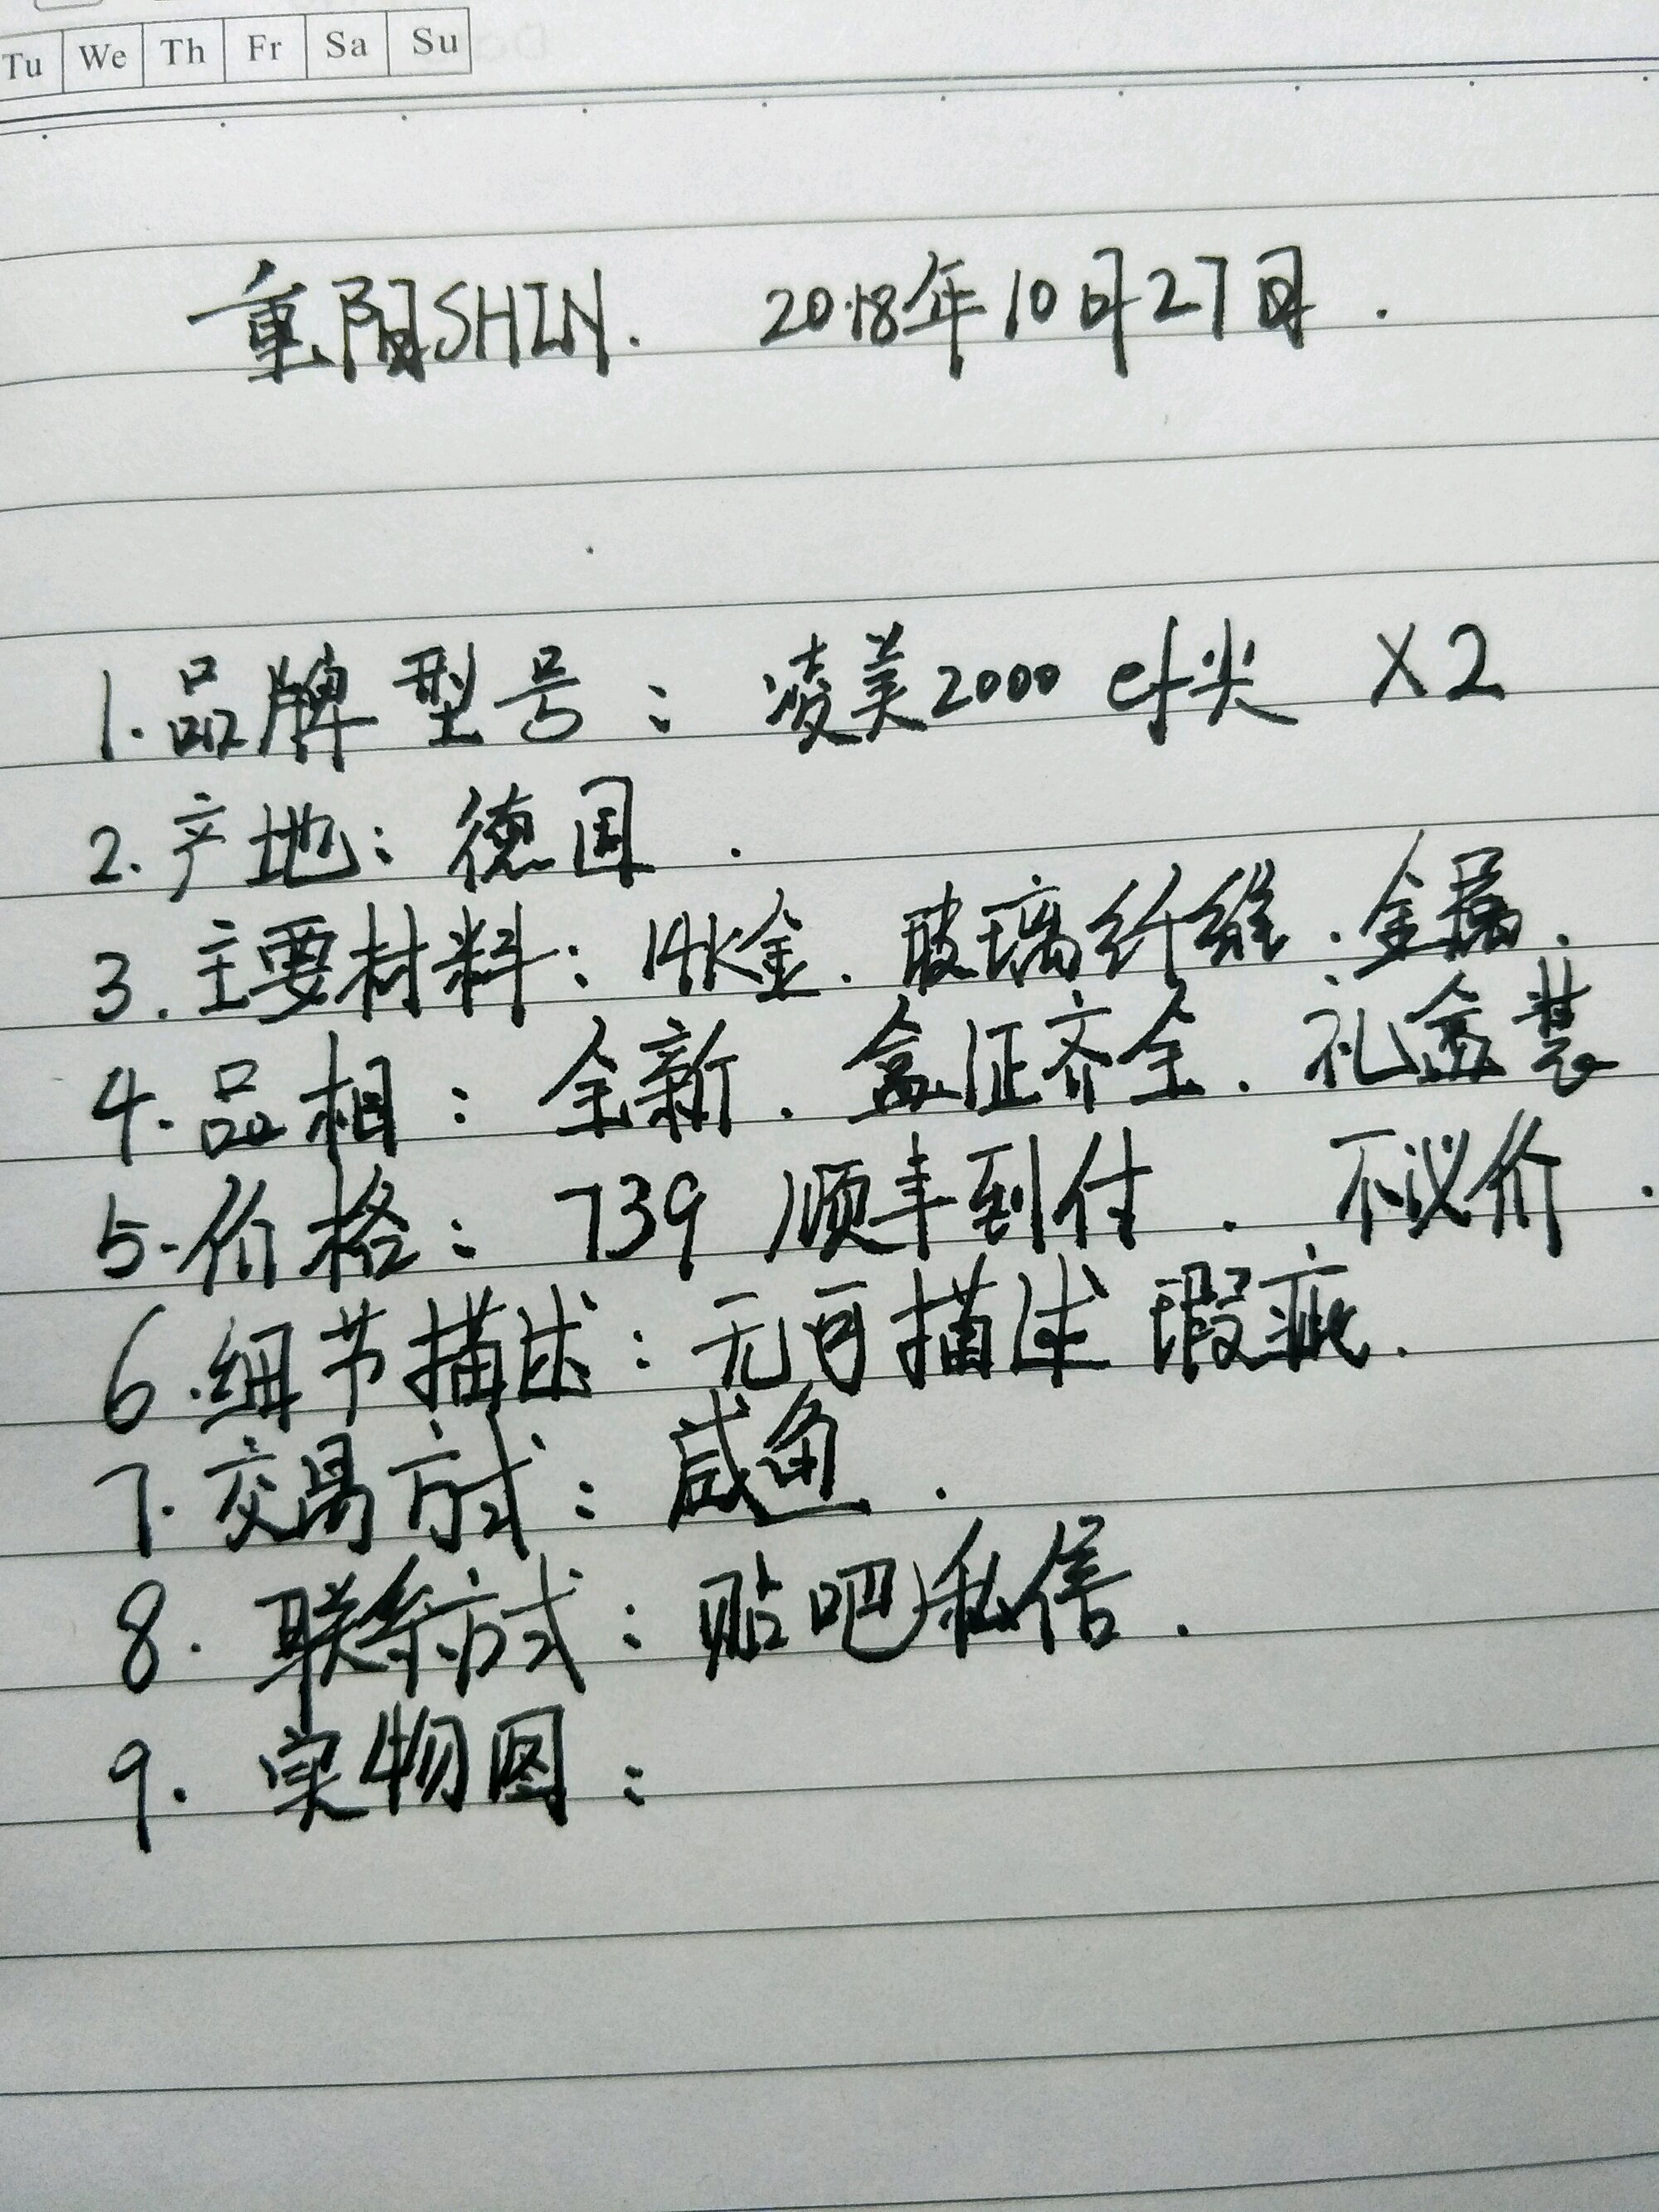 Tu We Th Fr Sa Su
重阳SHIN. 2018年10月27日.
1.品牌型号：凌美2000 ef尖 X2
2.产地：德国.
3.主要材料：14K金.玻璃纤维.金属.
4.品相：全新.盒证齐全.礼盒装
5.价格：739 顺丰到付.不议价.
6.细节描述：无可描述瑕疵.
7.交易方式：咸鱼.
8.联系方式：贴吧私信.
9.实物图：